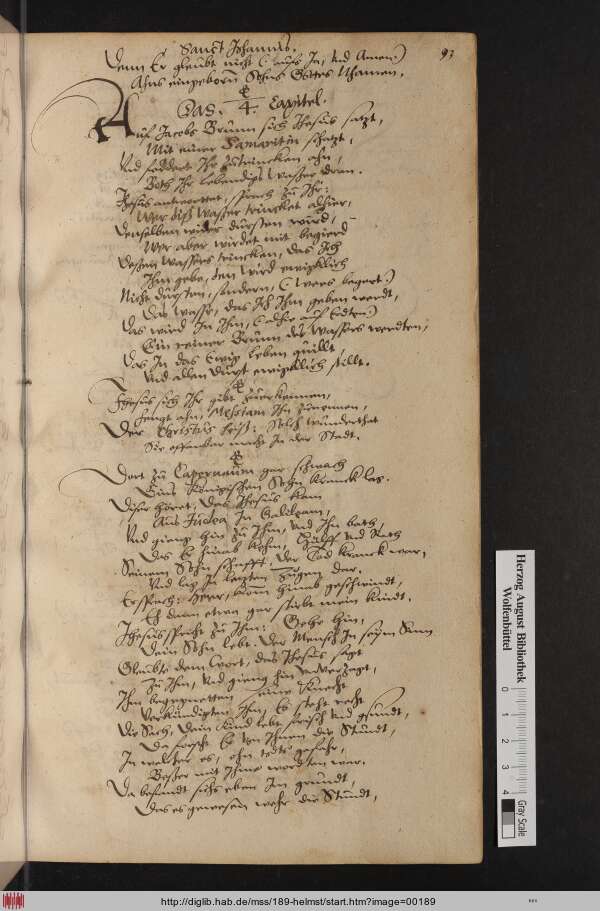 Sanct Johannis.
93
Denn Er gleubt nicht (auffs Ja, und Amen)
Ahns eingeborn Sohns Gottes Nhamen.
Das. 4. Capitel.
Auf Jacobs Brunn sich Jhesus satzt,
Mit einer Samaritin schatzt,
Und foddert Ihr zutrincken ahn,
Both Ihr lebendigs Wasser dran.
Jhesus antworttet, sprach zu Ihr:
Wer diß Wasser trincket alhier,
Denselben wider dürsten wird,
Wer aber wirdet mit begierd
Dessen Wassers trincken, das Ich
Ihm gebe, den wird ewigklich
Nicht dürsten, sondern, (wers begert)
Das Wasser, das Ich Ihm geben werdt,
Das wird In Ihm, (alhie auf Erdten)
Ein reiner Brunn des Wassers werdten,
Das In das Ewig leben quillt,
Und allen durst ewigklich stillt.
Jhesus sich Ihr gibt zuerkennen,
fengt ahn, Messiam Ihn zunennen,
Der Christus heiß: Solch wunderthat
Sie offenbar macht In der Stadt.
Dort zu Capernaum gar schwach
Eins Königischen Sohn kranck lag.
Diser höret, das Jhesus kam
Aus Judea In Galileam,
Und gieng hin zu Ihm, und Ihn bath,
Das Er hinab kehm, hülff und Rath
Seinem Sohn schafft, der Tod kranck war,
Und lag In letzten Zügen dar.
Er sprach: Herr, kom hinab geschwindt,
Eh dann etwa gar stirbt mein kindt.
Jhesus spricht zu Ihm: Gehe hin,
Dein Sohn lebt. Der Mensch In seym Sinn
Gleubte dem Wort, das Jhesus sagt
Zu Ihm, und gieng hin unverzagt,
Ihm begegnetten seine Knecht
Verkündigten Ihm, Er steht recht
Die Sach, Dein kind lebt frisch und gsundt,
Da forscht Er von Ihnen die Stundt,
In welcher es, ohn todts gefahr,
Besser mit Ihme wordten war.
Da befundt sichs eben Im grundt,
Das es gewesen wehr die Stundt,
Herzog August Bibliothek
Wolfenbüttel
0 1 2 3 4
Gray Scale
http://diglib.hab.de/mss/189-helmst/start.htm?image=00189